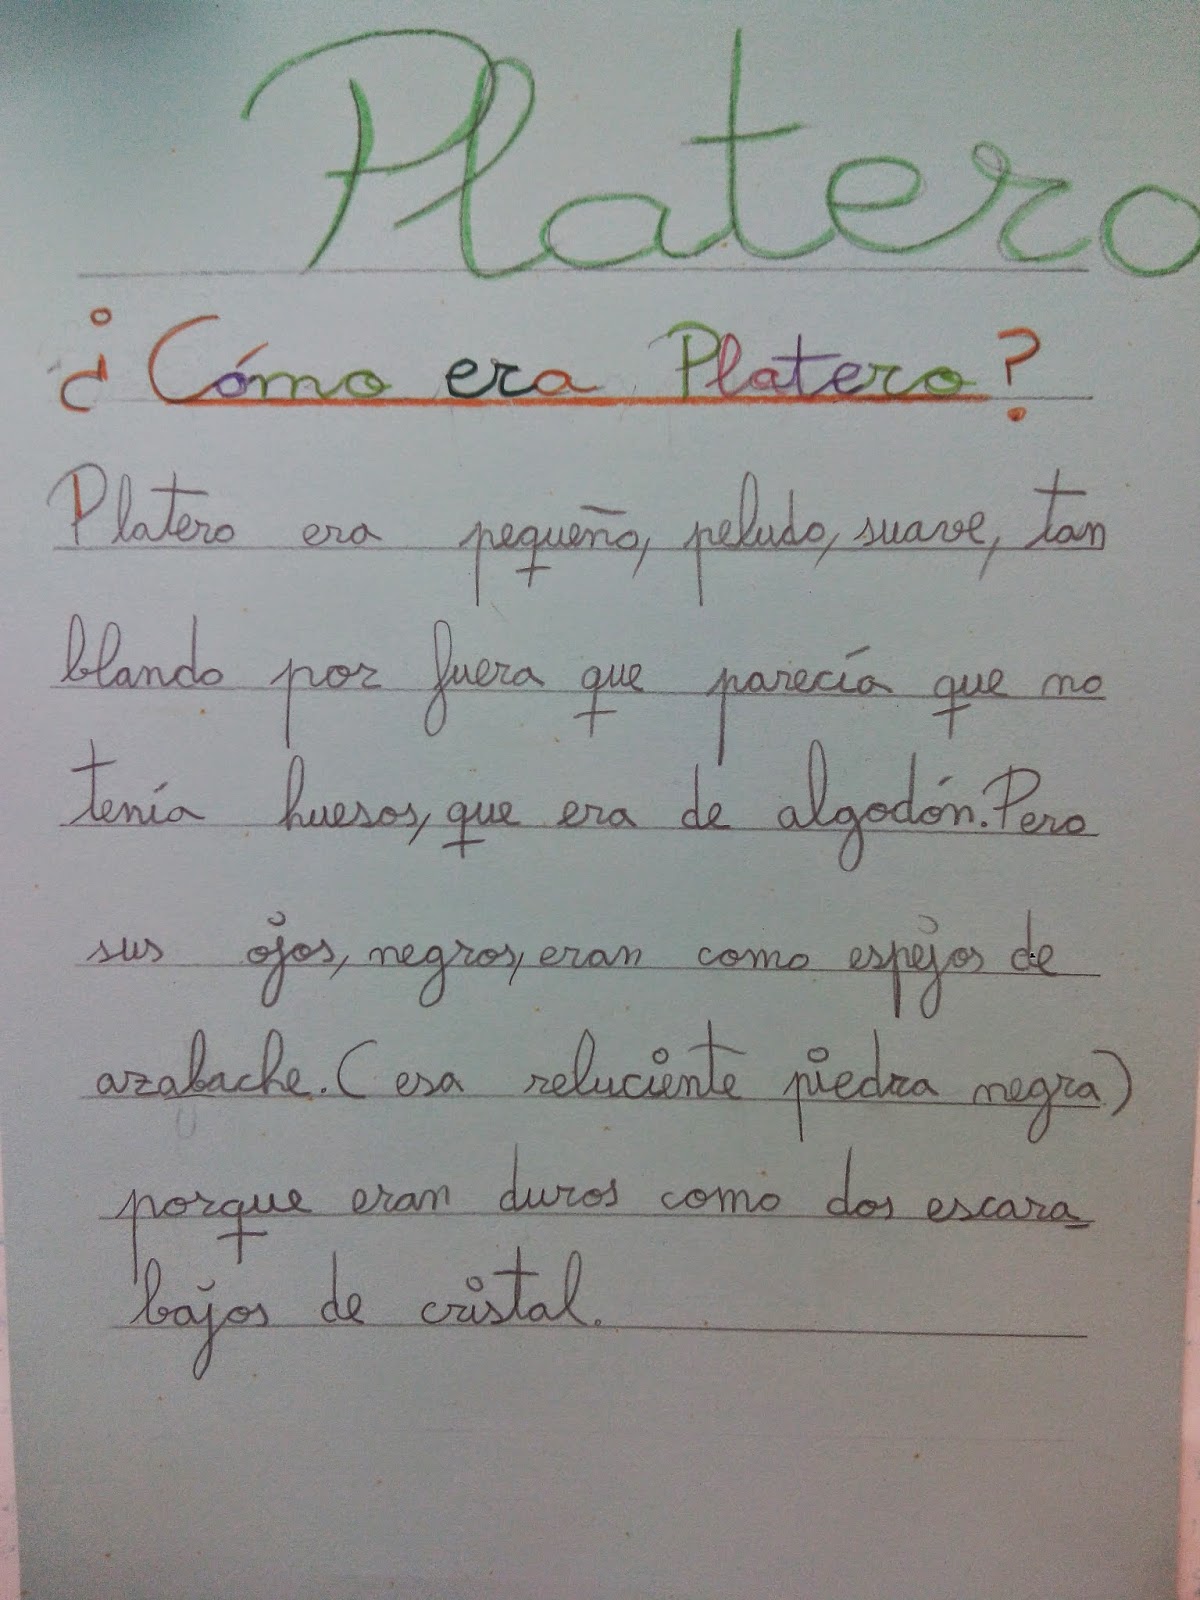 Platero
¿Cómo era Platero?
Platero era pequeño, peludo, suave, tan
blando por fuera que parecía que no
tenía huesos, que era de algodón. Pero
sus ojos, negros, eran como espejos de
azabache. (esa reluciente piedra negra)
porque eran duros como dos escara-
bajos de cristal.